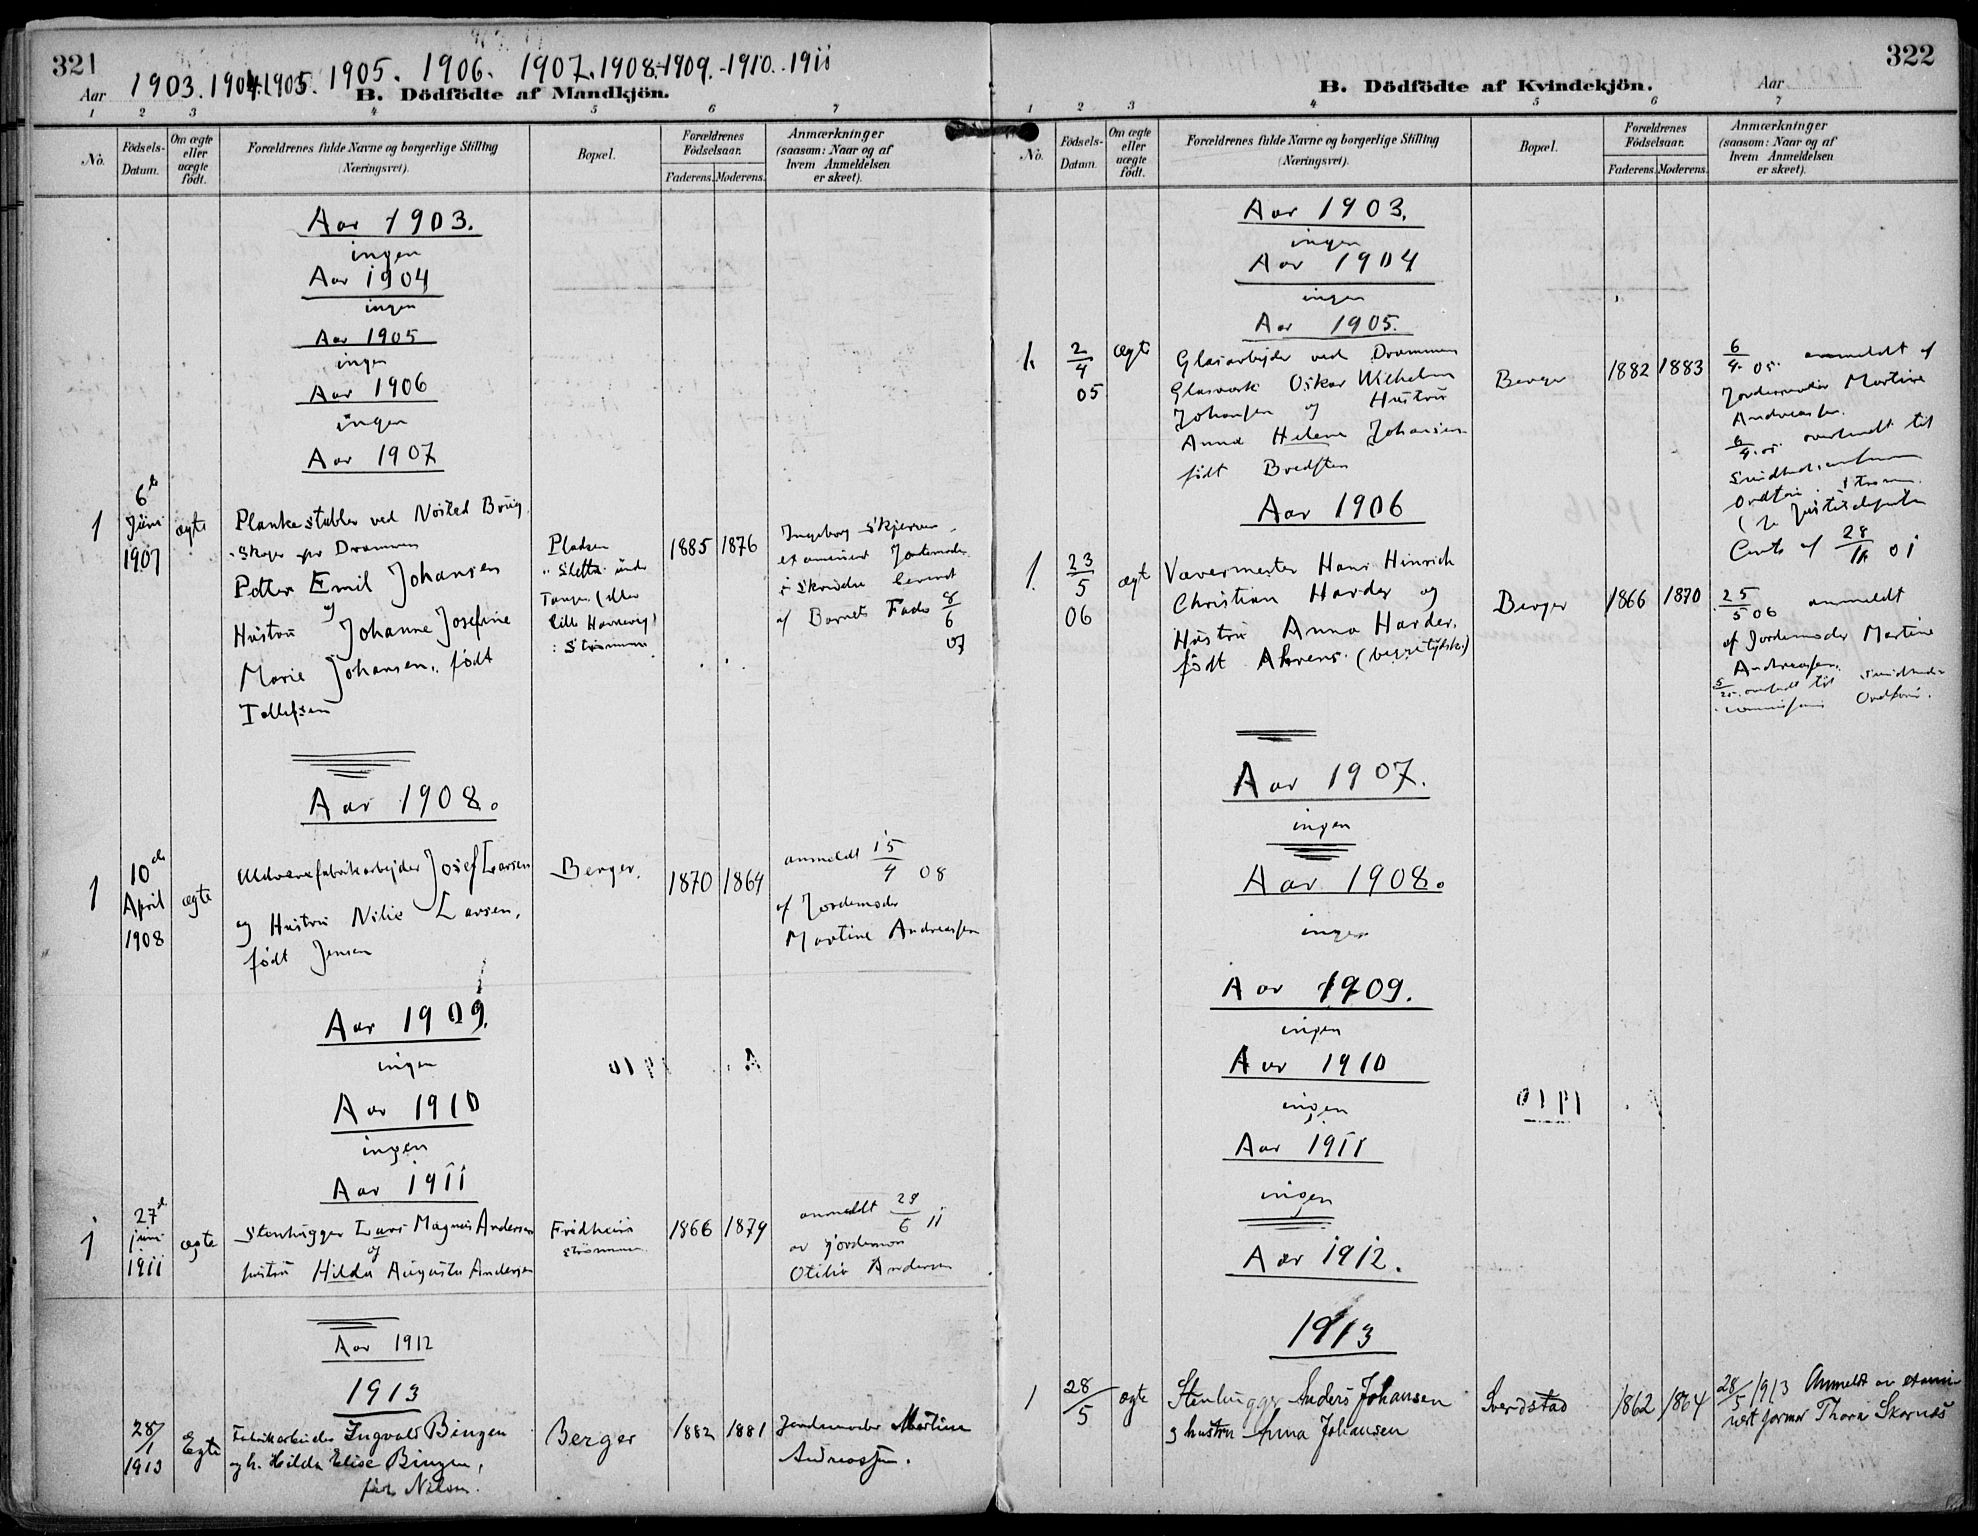 321
Aar 1903. 1904. 1905. 1905. 1906. 1907. 1908. 1909. 1910. 1911
B. Dödfödte af Mandkjön.
1 2 3 4 5 6 7
No.
Födsels-Datum.
Om ægte eller uægte födt.
Forældrenes fulde Navne og borgerlige Stilling (Næringsvei).
Bopæl.
Forældrenes Födselsaar.
Faderens. Moderens.
Anmærkninger (saasom: Naar og af hvem Anmeldelsen er skeet).
Aar 1903.
ingen
Aar 1904
ingen
Aar 1905
ingen
Aar 1906
ingen
Aar 1907
1
6te Juni 1907
ægte
Plankestabler ved Nøsted Brug
Skoger pr Drammen
Petter Emil Johansen
og
Hustru Johanne Josefine
Marie Johansen, født
Tollefsen
Pladsen
Sletta under
Tangen (eller
lille Havnevig)
Strømmen
1885 1876
Ingeborg Skjerven
examineret Jordemoder
i Skoger
af Barnets Fader 8/6 07
Aar 1908.
1
10de April 1908
ægte
Uldvarefabrikarbejder Josef Larsen
og Hustru Nilie Larsen,
født Jensen
Berger.
1870 1864
anmeldt 15/4 08
af Jordemoder
Martine Andreassen
Aar 1909.
ingen
Aar 1910
ingen
Aar 1911
1
27d juni 1911
ægte
Stenhugger Lars Magnus Andersen
og
hustru Hilda Augusta Andersen
Fridheim
Strømmen
1866 1879
anmeldt 29/6 11
av jordemor
Otilie Andersen
Aar 1912
1913
28/1 1913
Egte
Fabrikarbeider Ingvald Bingen
og h. Hilda Elise Bingen,
født Nilsen.
Berger
1882 1881
Jordemoder Martine
Andreassen.
322
B. Dödfödte af Kvindekjön.
Aar
1 2 3 4 5 6 7
No.
Födsels-Datum.
Om ægte eller uægte födt.
Forældrenes fulde Navne og borgerlige Stilling (Næringsvei).
Bopæl.
Forældrenes Födselsaar.
Faderens. Moderens.
Anmærkninger (saasom: Naar og af hvem Anmeldelsen er skeet).
Aar 1903.
ingen
Aar 1904
ingen
Aar 1905.
1.
2/4 05
ægte
Glasarbejder ved Drammen
Glasværk Oskar Wilhelm
Johansen og Hustru
Anna Helene Johansen
født Bredsten
Berger
1882 1883
6/4 05. anmeldt af
Jordemoder Martine
Andreassen.
6/4 05 oversendt til
Ordfører i Strøm.
28/12 01
Aar 1906
1.
23/5 06
ægte
Væwermester Hans Hinrich
Christian Harder og
Hustru Anna Harder,
født Ahrens. (begge tydske)
Berger
1866 1870
25/5 06 anmeldt
af Jordemoder Martine
Andreassen.
Ordfører.
Aar 1907.
ingen
Aar 1908.
ingen
Aar 1909.
ingen
Aar 1910
ingen
Aar 1911
ingen
Aar 1912.
1913
1
28/5
ægte
Stenhugger Anders Johansen
og hustru Anna Johansen
Sverdstad
1862 1864
28/5 1913 Anmeldt av exami
nert jormor Thora Skarnæs